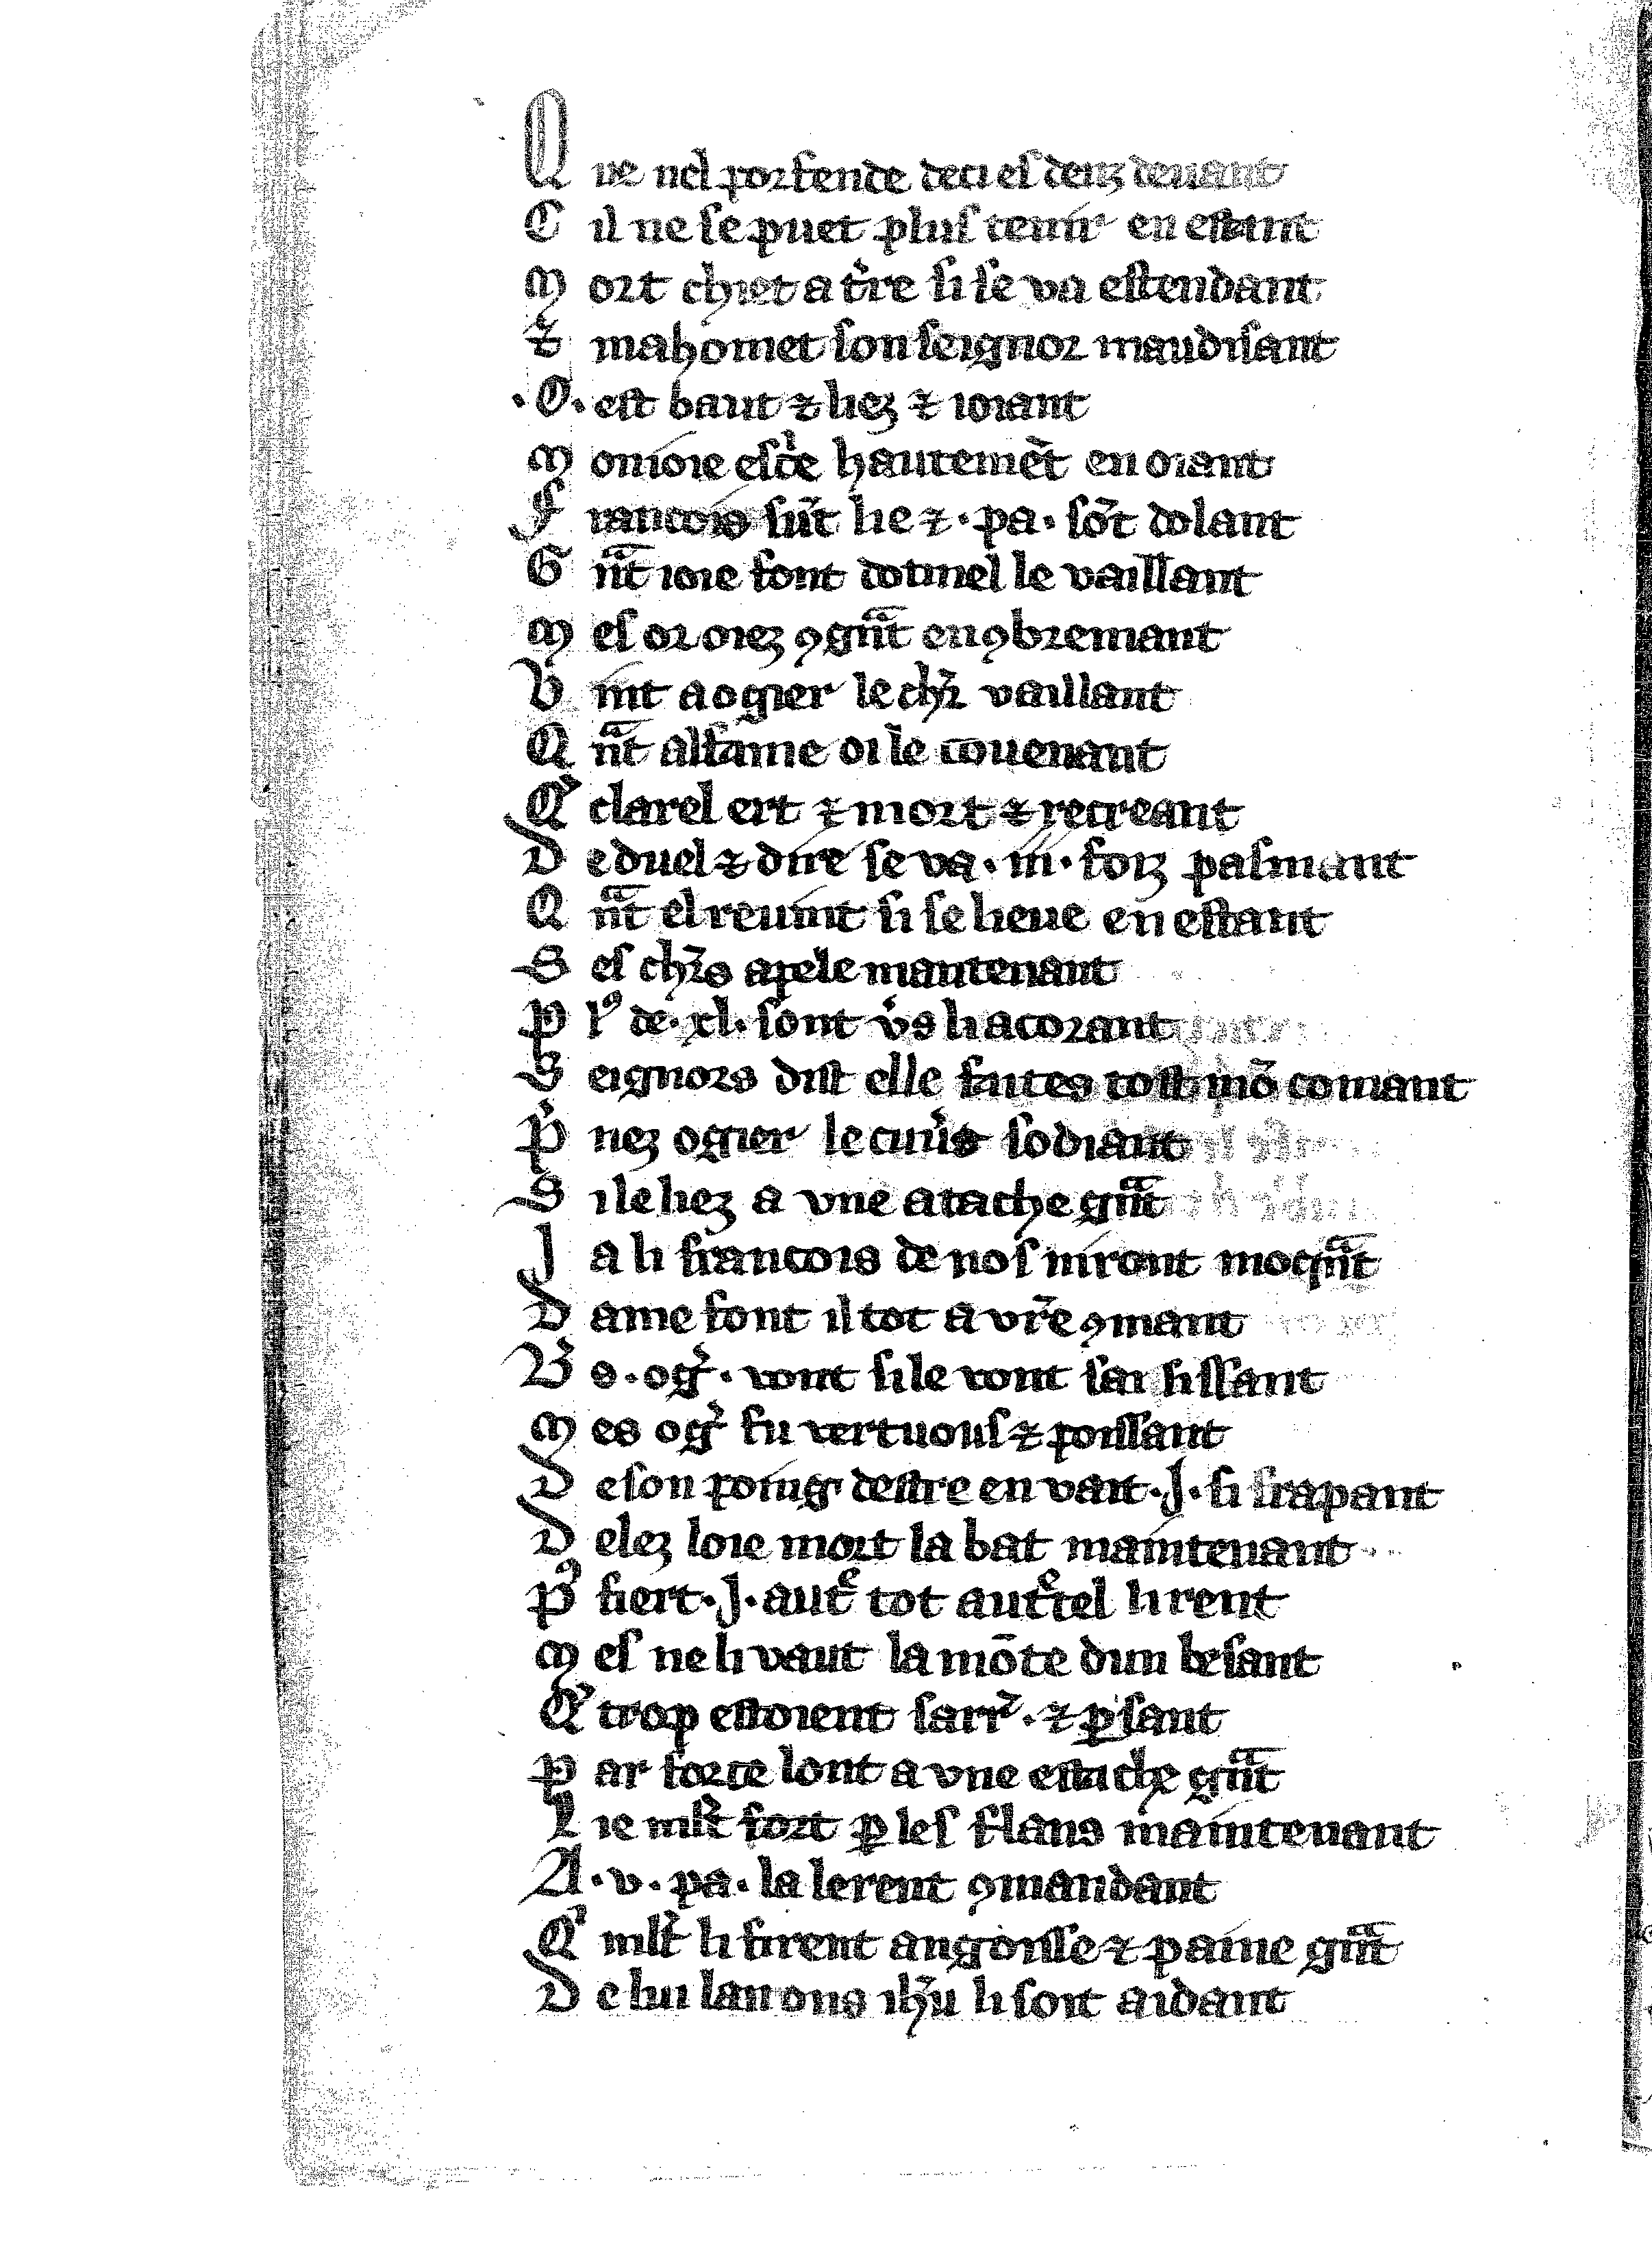 Q ue nel porfende deci es denz deuant
C il ne se puet plus tenir en estant
M ort chiet a t̉re si se va estendant
⁊ mahomet son seignor maudisant
.O. est baut ⁊ liez ⁊ ioiant
M onioie esc̉e hautemēt en oiant
F rancois sūt lie ⁊ .pa. sōt dolant
G nͣt ioie font dotinel le vaillant
M es or oiez ꝯgnͣt enꝯbremant
V int a ogier le chl̉r vaillant
Q nͣt alfamie oi le couenant
Q̉ clarel ert ⁊ mort ⁊ recreant
D e duel ⁊ dire se va .iii. foiz pasmant
Q nͣt el reuint si se lieue en estant
S es chl̉rs apele mantenant
P lꝰ de .xl. sont v̉s li acorant
S eignors dist elle faites tost mō comant
P̉ nez ogier le cuiủs sodiant
S i le liez a vne atache gnͣt
J a li francois de nos niront moqnͣt
D ame font il tot a vr̄e ꝯmant
V̉ s .og̉. vont si le vont saisissant
M es og̉ fu vertuous ⁊ poissant
D e son poing destre en vait .J. si frapant
D elez loie mort la bat maintenant
Pꝰ fiert .J. autͤ tot autͤtel li rent
M es ne li vaut la mōte dun besant
Q̉ trop estoient sarr̉. ⁊ ꝑsant
P ar force lont a vne estache gnͣt
L ie ml̉t fort ꝑ les flans maintenant
A .v. pa. la lerent ꝯmandant
Q̉ ml̉t li firent angoisse ⁊ paine gnͣt
D e lui lairons ih̄u li soit aidant